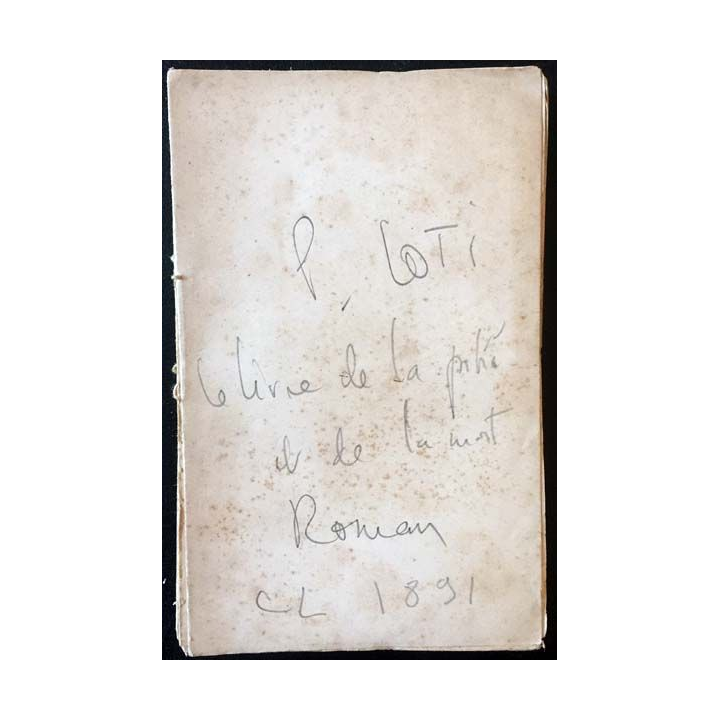 P. Loti
Le livre de la pitié
et de la mort
Roman
CL 1891